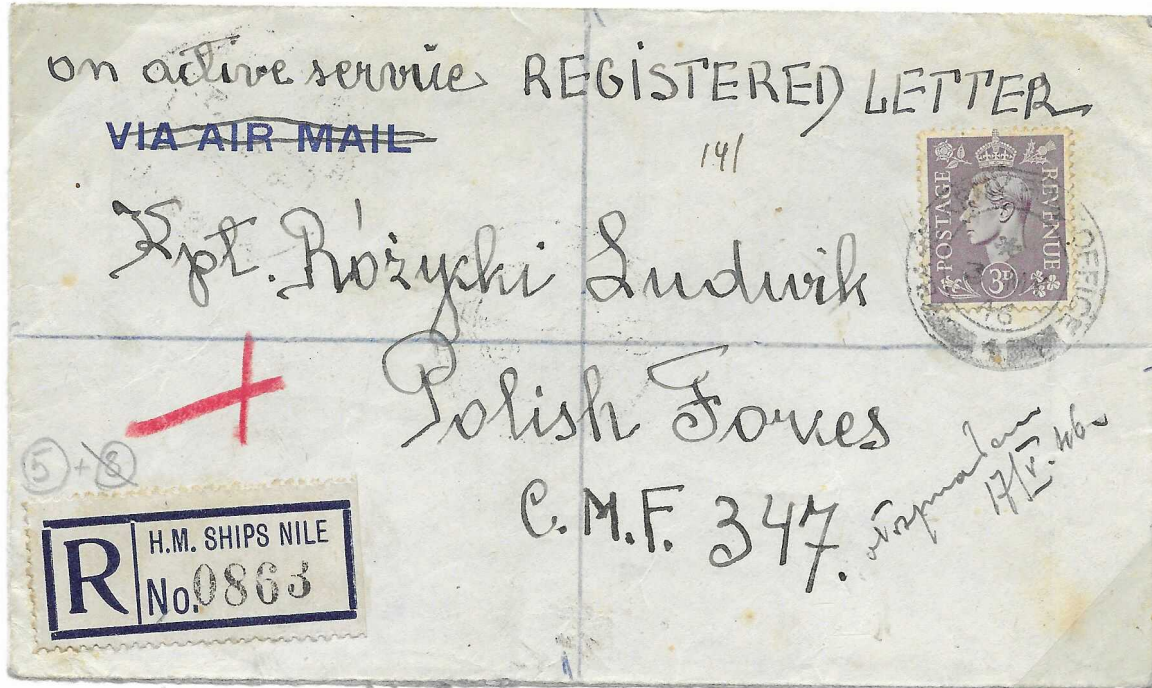 on active service REGISTERED LETTER
VIA AIR MAIL
14/
POSTAGE REVENUE
3D
OFFICE
46
Kpt. Różycki Ludwik
Polish Forces
C.M.F. 347.
otrzymałem
17/V.46
5 + 8
R
H.M. SHIPS NILE
No. 0863